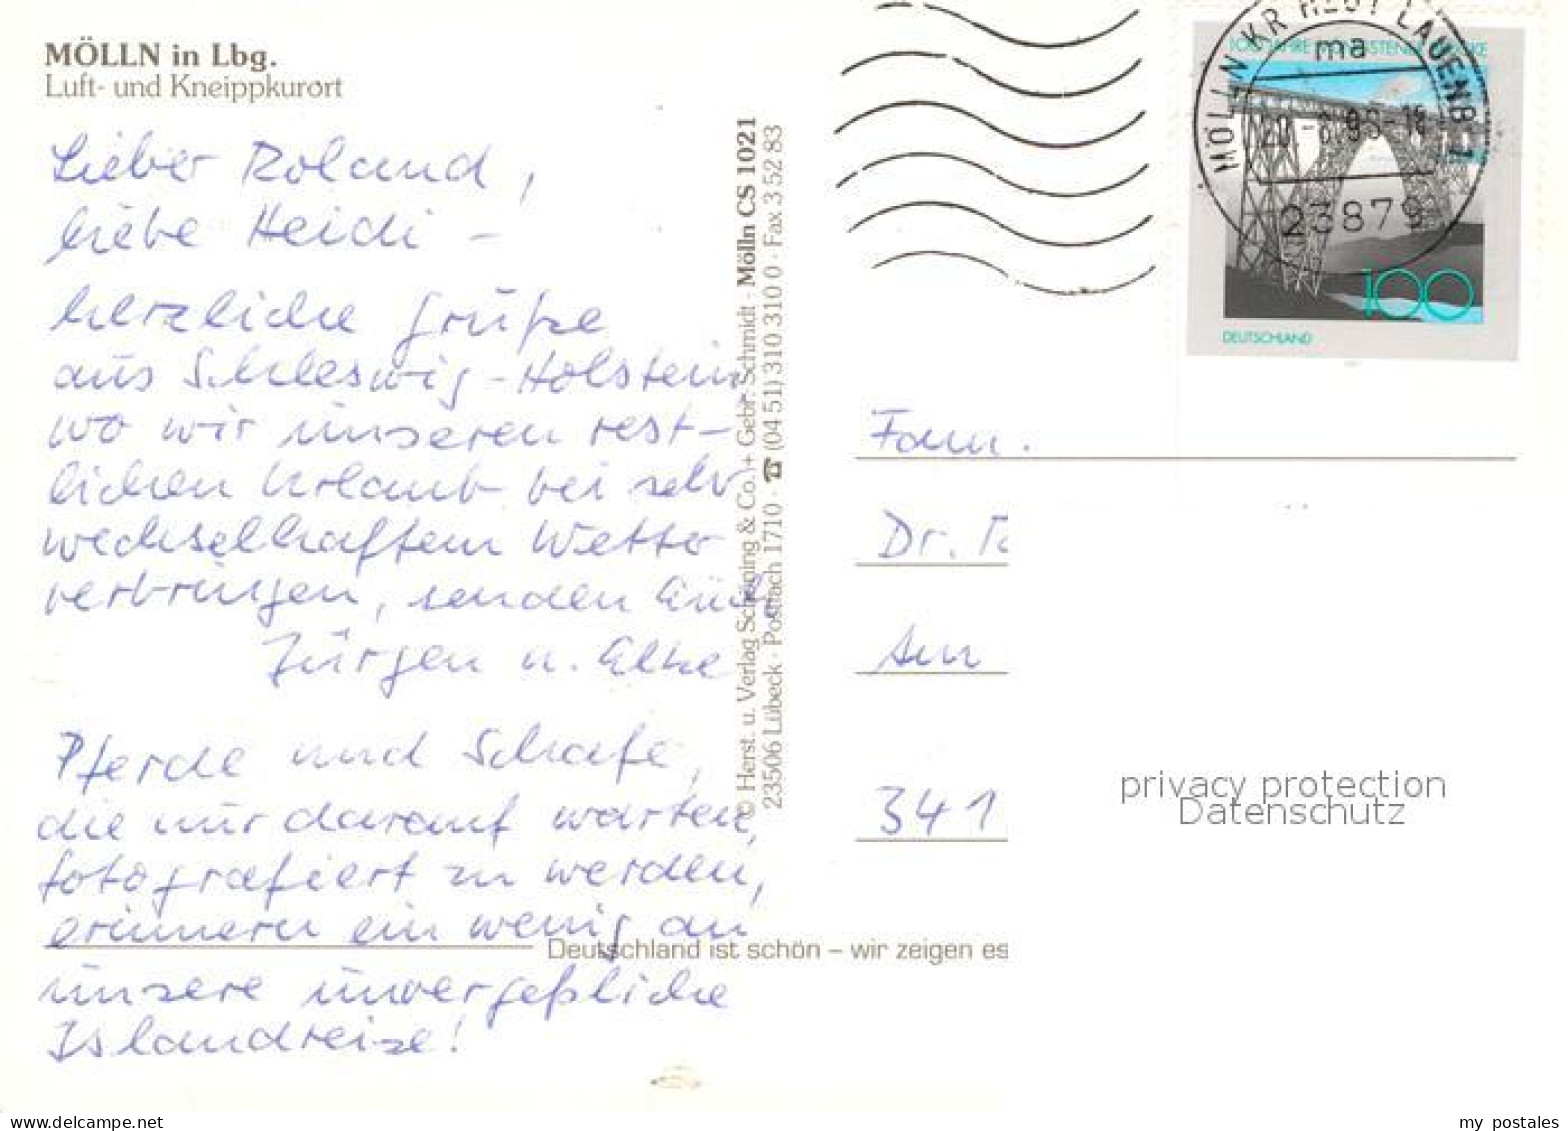 MÖLLN in Lbg.
Luft- und Kneippkurort
Lieber Roland,
liebe Heidi –
herzliche Grüße
aus Schleswig-Holstein
wo wir unseren rest-
lichen Urlaub bei sehr
wechselhaftem Wetter
verbringen, senden Euch
Jürgen u. Elke
Pferde und Schafe,
die nur darauf warten,
fotografiert zu werden,
erinnern ein wenig an
unsere unvergeßliche
Islandreise!
© Herst. u. Verlag Schöning & Co. + Gebr. Schmidt · Mölln CS 1021
23506 Lübeck · Postfach 1710 · ☎ (04 51) 310 310 0 · Fax 3 52 83
Deutschland ist schön – wir zeigen es
MÖLLN KR HZGT LAUENB 1
ma
23879
100
DEUTSCHLAND
Fam.
Dr.
Am
341
privacy protection
Datenschutz
my postales